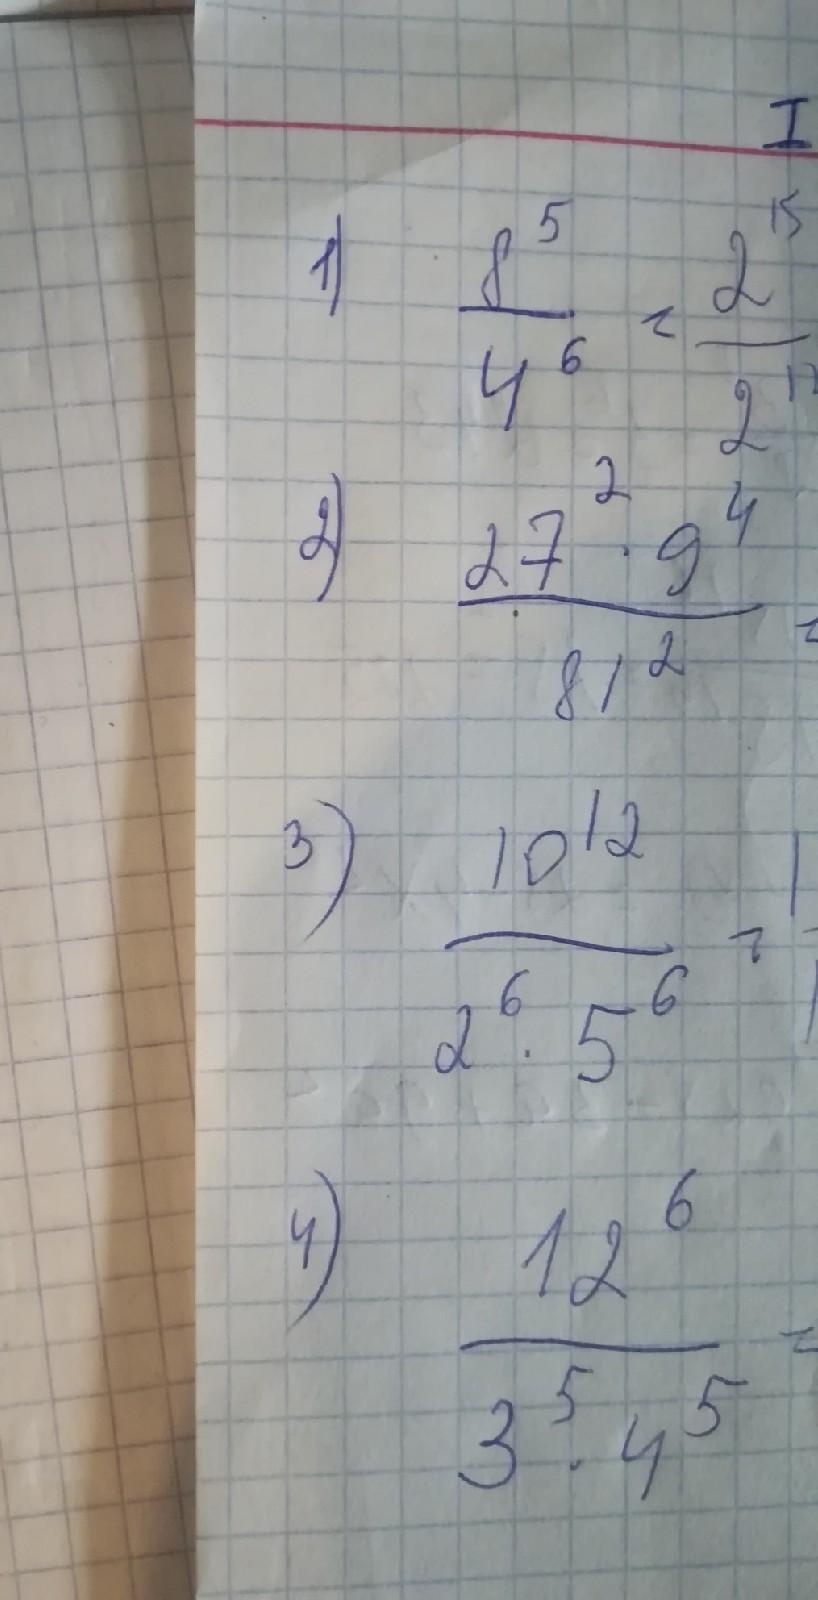 I
1) 8^5 / 4^6 = 2^15 / 2^1
2) 27^2 · 9^4 / 81^2 =
3) 10^12 / 2^6 · 5^6 = 1 / 1
4) 12^6 / 3^5 · 4^5 =